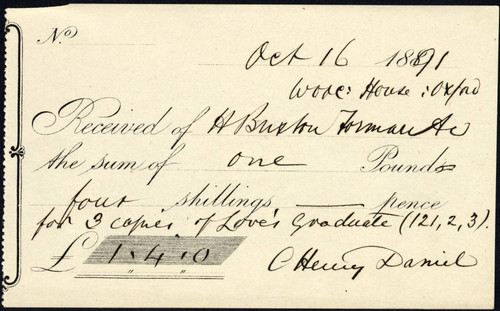 No.
Oct 16 1891
Worc: House: Oxford
Received of H Buxton Forman
the sum of one Pounds
four shillings — pence
for 3 copies of Love's Graduate (121, 2, 3).
£ 1. 4. 0
C Henry Daniel